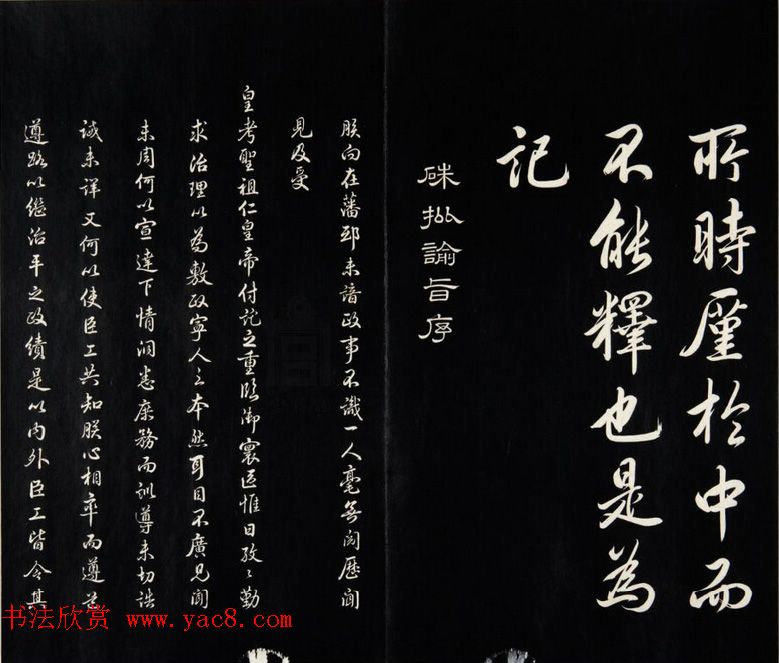 所時廑於中而
不能釋也是為
記
硃批諭旨序
朕向在藩邸未諳政事不識一人毫無閱歷聞
見及受
皇考聖祖仁皇帝付託之重臨御寰區惟日孜〻勤
求治理以為敷政寧人之本然耳目不廣見聞
未周何以宣達下情洞悉庶務而訓導未切誥
誡未詳又何以使臣工共知朕心相率而遵道
遵路以繼治平之政績是以內外臣工皆令其
书法欣赏 www.yac8.com